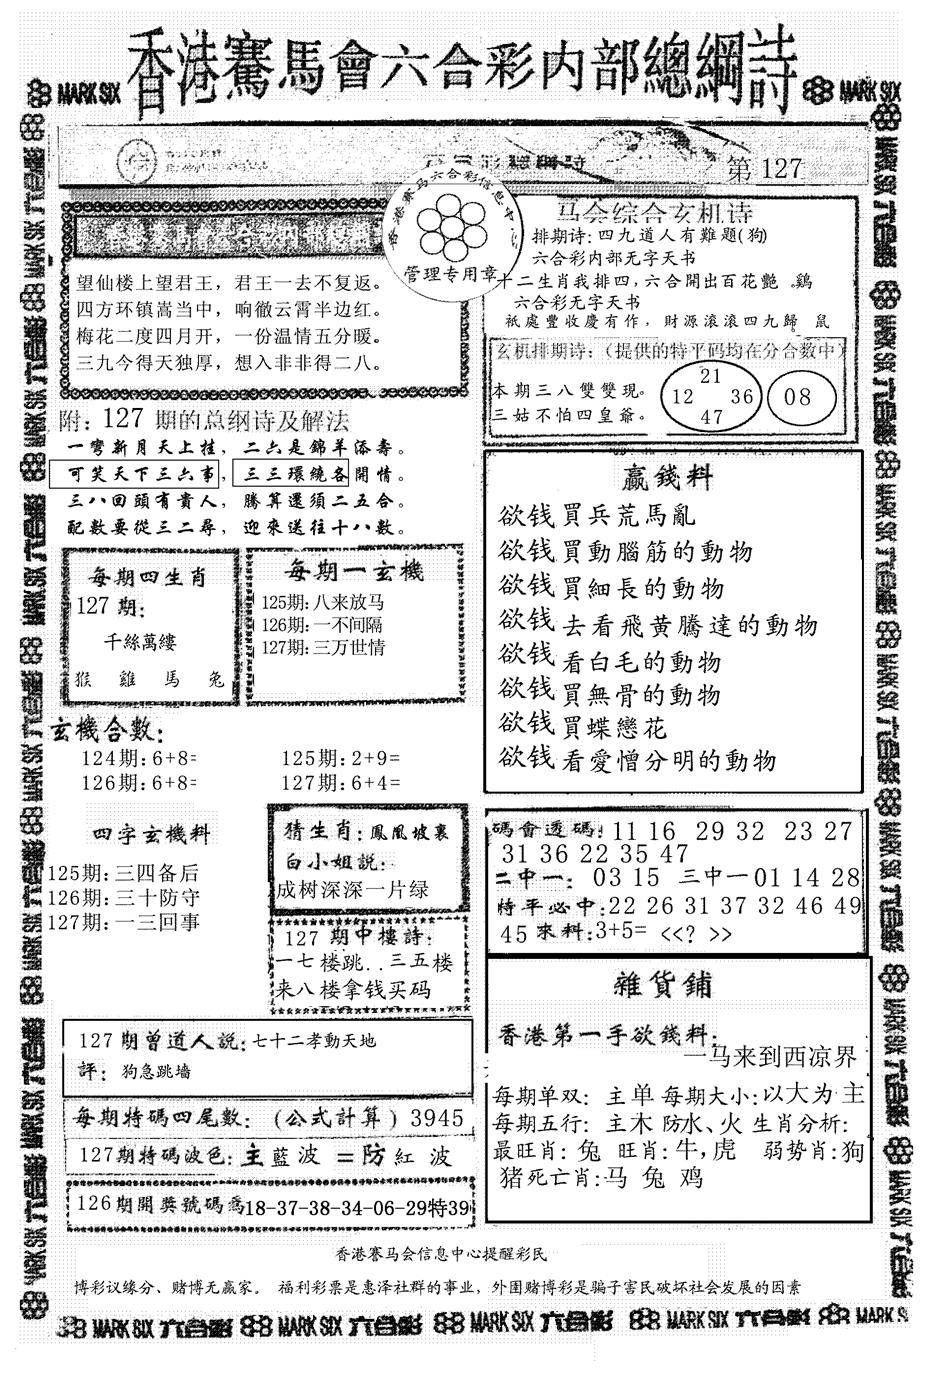 香港賽馬會六合彩内部總綱詩
MARK SIX
MARK SIX
第 127
香港赛马六合彩信息中心
管理专用章
望仙楼上望君王，君王一去不复返。
四方环镇嵩当中，响徹云霄半边红。
梅花二度四月开，一份温情五分暖。
三九今得天独厚，想入非非得二八。
马会综合玄机诗
排期诗:四九道人有難題(狗)
六合彩内部无字天书
十二生肖我排四,六合開出百花艷 。鷄
六合彩无字天书
祇處豐收慶有作，財源滚滚四九歸 鼠
玄机排期诗:（提供的特平码均在分合数中）
本期三八雙雙現。
三姑不怕四皇爺。
21
12 36
47
08
附: 127 期的总纲诗及解法
一彎新月天上挂，二六是錦羊添壽。
可笑天下三六事，三三環繞各開情。
三八回頭有貴人，勝算還須二五合。
配數要從三二尋，迎來送往十八數。
每期四生肖
127 期:
千絲萬縷
猴 雞 馬 兔
每期一玄機
125期:八来放马
126期:一不间隔
127期:三万世情
赢錢料
欲钱買兵荒馬亂
欲钱買動腦筋的動物
欲钱買細長的動物
欲钱去看飛黄騰達的動物
欲钱看白毛的動物
欲钱買無骨的動物
欲钱買蝶戀花
欲钱看愛憎分明的動物
玄機合數:
124期:6+8= 125期:2+9=
126期:6+8= 127期:6+4=
四字玄機料
125期:三四备后
126期:三十防守
127期:一三回事
猜生肖:鳳凰坡裏
白小姐説:
成树深深一片绿
127 期中樓詩:
一七楼跳..三五楼
来八楼拿钱买码
碼會透碼:11 16 29 32 23 27
31 36 22 35 47
二中一: 03 15 三中一01 14 28
特平必中:22 26 31 37 32 46 49
45 來料:3+5= <<? >>
127期曾道人説:七十二孝動天地
評: 狗急跳墙
每期特碼四尾數: (公式計算) 3945
127期特碼波色:主藍波 =防紅 波
126期開獎號碼爲18-37-38-34-06-29特39
雜貨鋪
香港第一手欲錢料:
一马来到西凉界
每期单双: 主单 每期大小:以大为主
每期五行: 主木 防水、火 生肖分析:
最旺肖: 兔 旺肖:牛,虎 弱势肖:狗
猪死亡肖:马 兔 鸡
香港赛马会信息中心提醒彩民
博彩议缘分、赌博无赢家。 福利彩票是惠泽社群的事业，外围赌博彩是骗子害民破坏社会发展的因素
MARK SIX 六合彩 MARK SIX 六合彩 MARK SIX 六合彩 MARK SIX 六合彩 MARK SIX